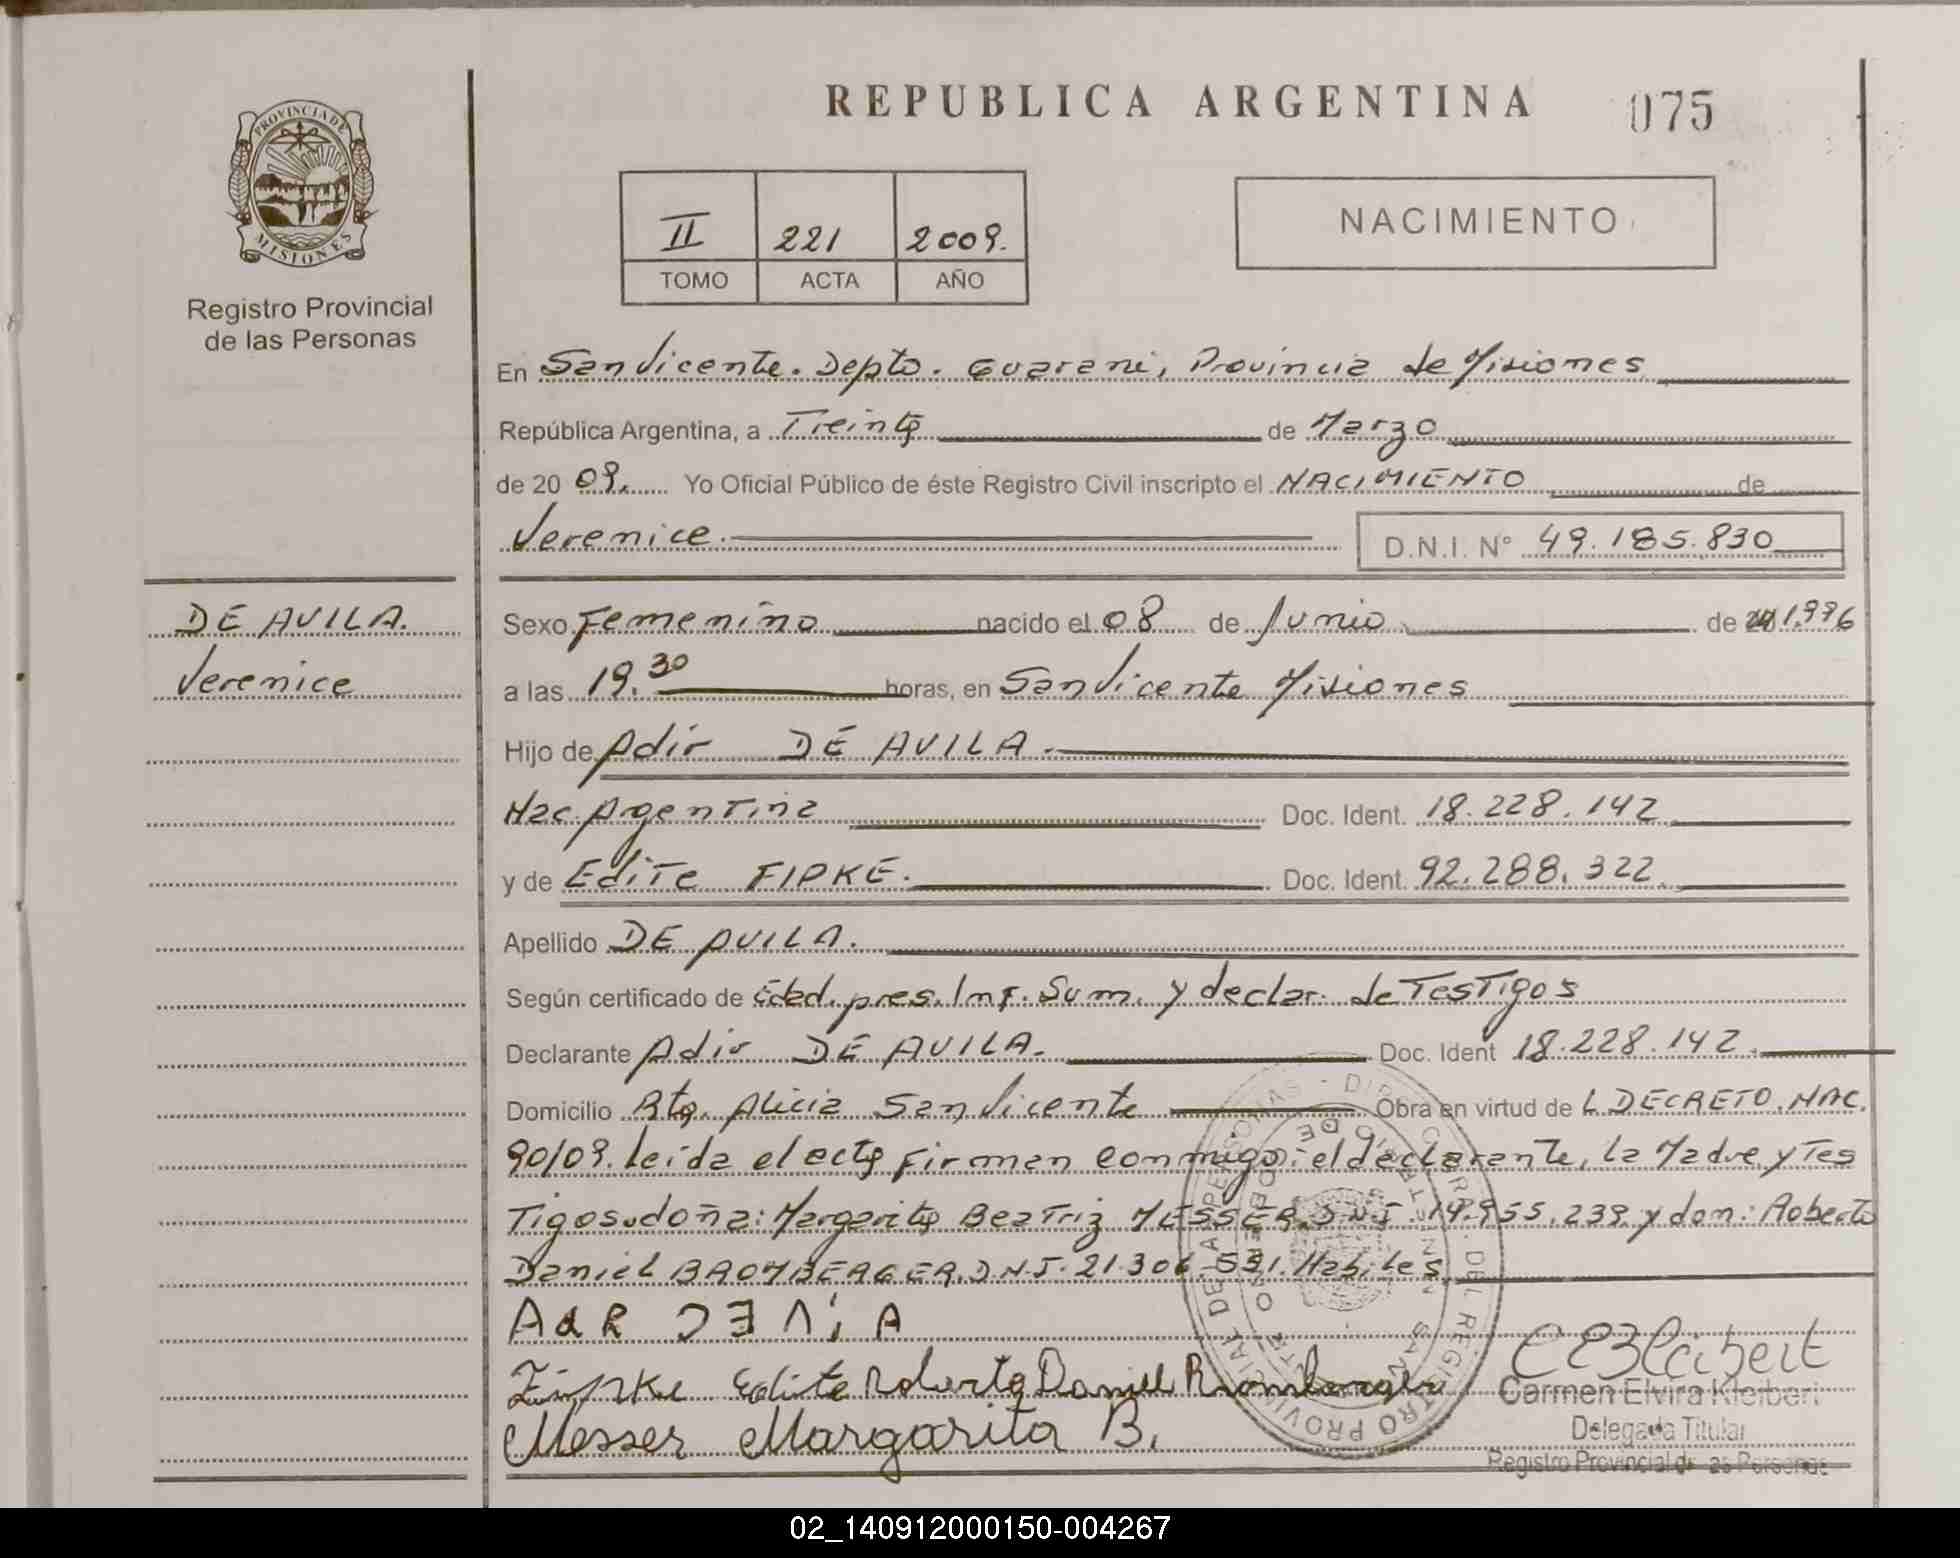 REPUBLICA ARGENTINA 075
PROVINCIA DE
MISIONES
Registro Provincial
de las Personas
NACIMIENTO
II 221 2009.
TOMO ACTA AÑO
En San Vicente. Depto. Guarani, Provincia de Misiones
República Argentina, a Treinta de Marzo
de 20 09. Yo Oficial Público de éste Registro Civil inscripto el NACIMIENTO de
Verenice. D.N.I. Nº 49.185.830
DE AVILA.
Verenice
Sexo Femenino nacido el 08 de Junio de 1.996
a las 19.30 horas, en San Vicente Misiones
Hijo de Adir DE AVILA.
Nac. Argentina Doc. Ident. 18.228.142
y de Edite FIPKE. Doc. Ident. 92.288.322.
Apellido DE AVILA.
Según certificado de Edad. pres. Inf. Sum. y declar. de Testigos
Declarante Adir DE AVILA. Doc. Ident 18.228.142.
Domicilio Rta. Alicia San Vicente Obra en virtud de L DECRETO. NAC.
90/09. Leida el acta firman conmigo: el declarante, la Madre y Tes
Tigos doña: Margarita Beatriz MESSER. D.N.I. 14.955.239 y don: Roberto
Daniel BROMBERGER. D.N.I. 21.306.531. Habiles
Fipke Edite Roberto Daniel Bromberger
Messer Margarita B.
Carmen Elvira Kleibert
Delegada Titular
Registro Provincial de las Personas
02_140912000150-004267